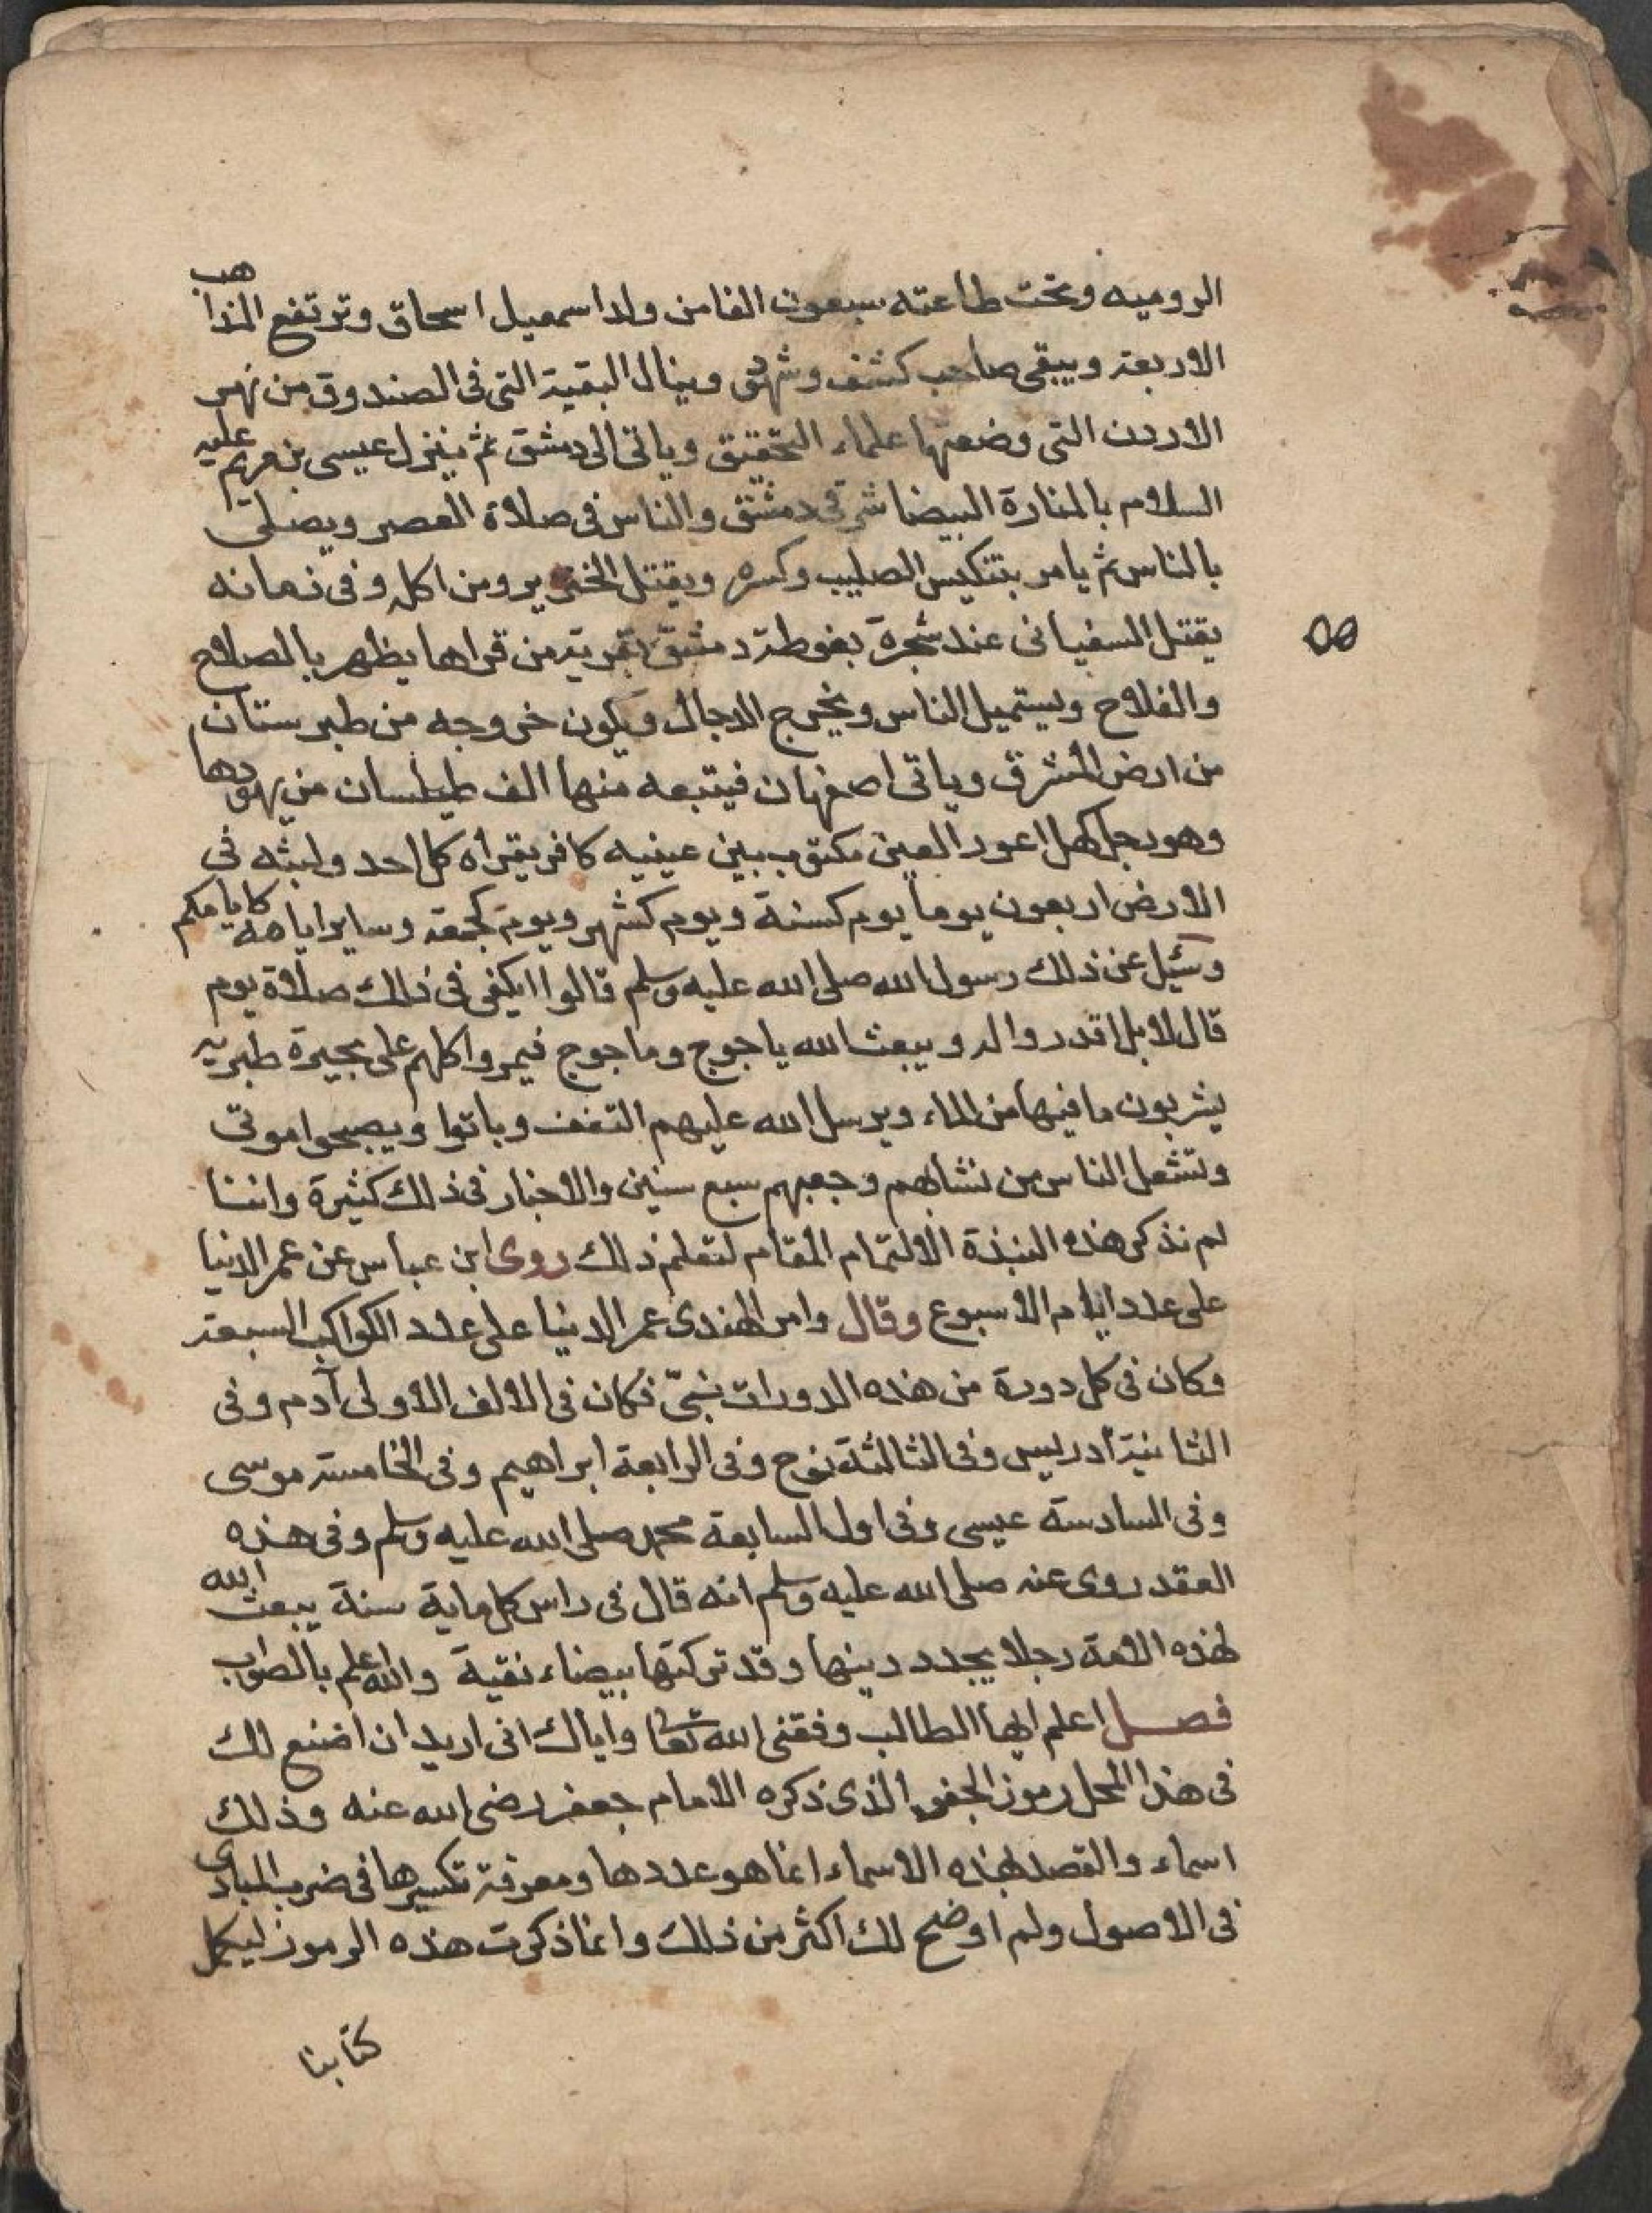 الروميه وتحت طاعته سبعون الفا من ولد اسمعيل اسحاق وترتفع المذاهب
الاربعة ويبقى صاحب كشف وشهود وينال البقية التى فى الصندوق من نهر
الاردن التى وضعتها علماء التحقيق وياتى الى دمشق ثم ينزل عيسى بن مريم عليه
السلام بالمنارة البيضا شرقى دمشق والناس فى صلاة العصر ويصلى
بالناس ثم يامر بتنكيس الصليب وكسره ويقتل الخنزير ومن اكله وفى زمانه
يقتل السفيانى عند شجرة بغوطة دمشق بقرية من قراها يظهر بالصلاح
والفلاح ويستميل الناس ويخرج الدجال ويكون خروجه من طبرستان
من ارض المشرق وياتى اصفهان فيتبعه منها الف طيلسان من يهودها
وهو رجل كهل اعور العين مكتوب بين عينيه كافر يقراه كل احد ولبثه فى
الارض اربعون يوما يوم كسنة ويوم كشهر ويوم كجمعة وساير ايامه كايامكم
وسئيل عن ذلك رسول الله صلى الله عليه وسلم قالوا ايكفى فى ذلك صلاة يوم
قال لا بل اقدروا له ويبعث الله ياجوج وماجوج فيمروا كلهم على بحيرة طبرية
يشربون ما فيها من الماء ويرسل الله عليهم النغف وباتوا ويصبحوا موتى
وتشعل الناس من نشابهم وجعبهم سبع سنين والاخبار فى ذلك كثيرة واننا
لم نذكر هذه النبذة الا لتمام المقام لتعلم ذلك روى ابن عباس عن عمر الدنيا
على عدد ايام الاسبوع وقال وامر الهندى عمر الدنيا على عدد الكواكب السبعة
وكان فى كل دورة من هذه الدورات نبىّ فكان فى الالف الاولى آدم وفى
الثانية ادريس وفى الثالثة نوح وفى الرابعة ابراهيم وفى الخامسة موسى
وفى السادسة عيسى وفى اول السابعة محمد صلى الله عليه وسلم وفى هذه
العقد روى عنه صلى الله عليه وسلم انه قال فى راس كل ماية سنة يبعث الله
لهذه الامة رجلا يجدد دينها وقد تركتها بيضاء نقية والله اعلم بالصواب
فصل اعلم ايها الطالب وفقنى الله تعا واياك انى اريد ان اضع لك
فى هذا المحل رموز الجفر الذى ذكره الامام جعفر رضى الله عنه وذلك
اسماء والقصد بهذه الاسماء انما هو عددها ومعرفة تكسيرها فى ضرب المبادى
فى الاصول ولم اوضح لك اكثر من ذلك وانما ذكرت هذه الرموز ليكمل
كتابنا